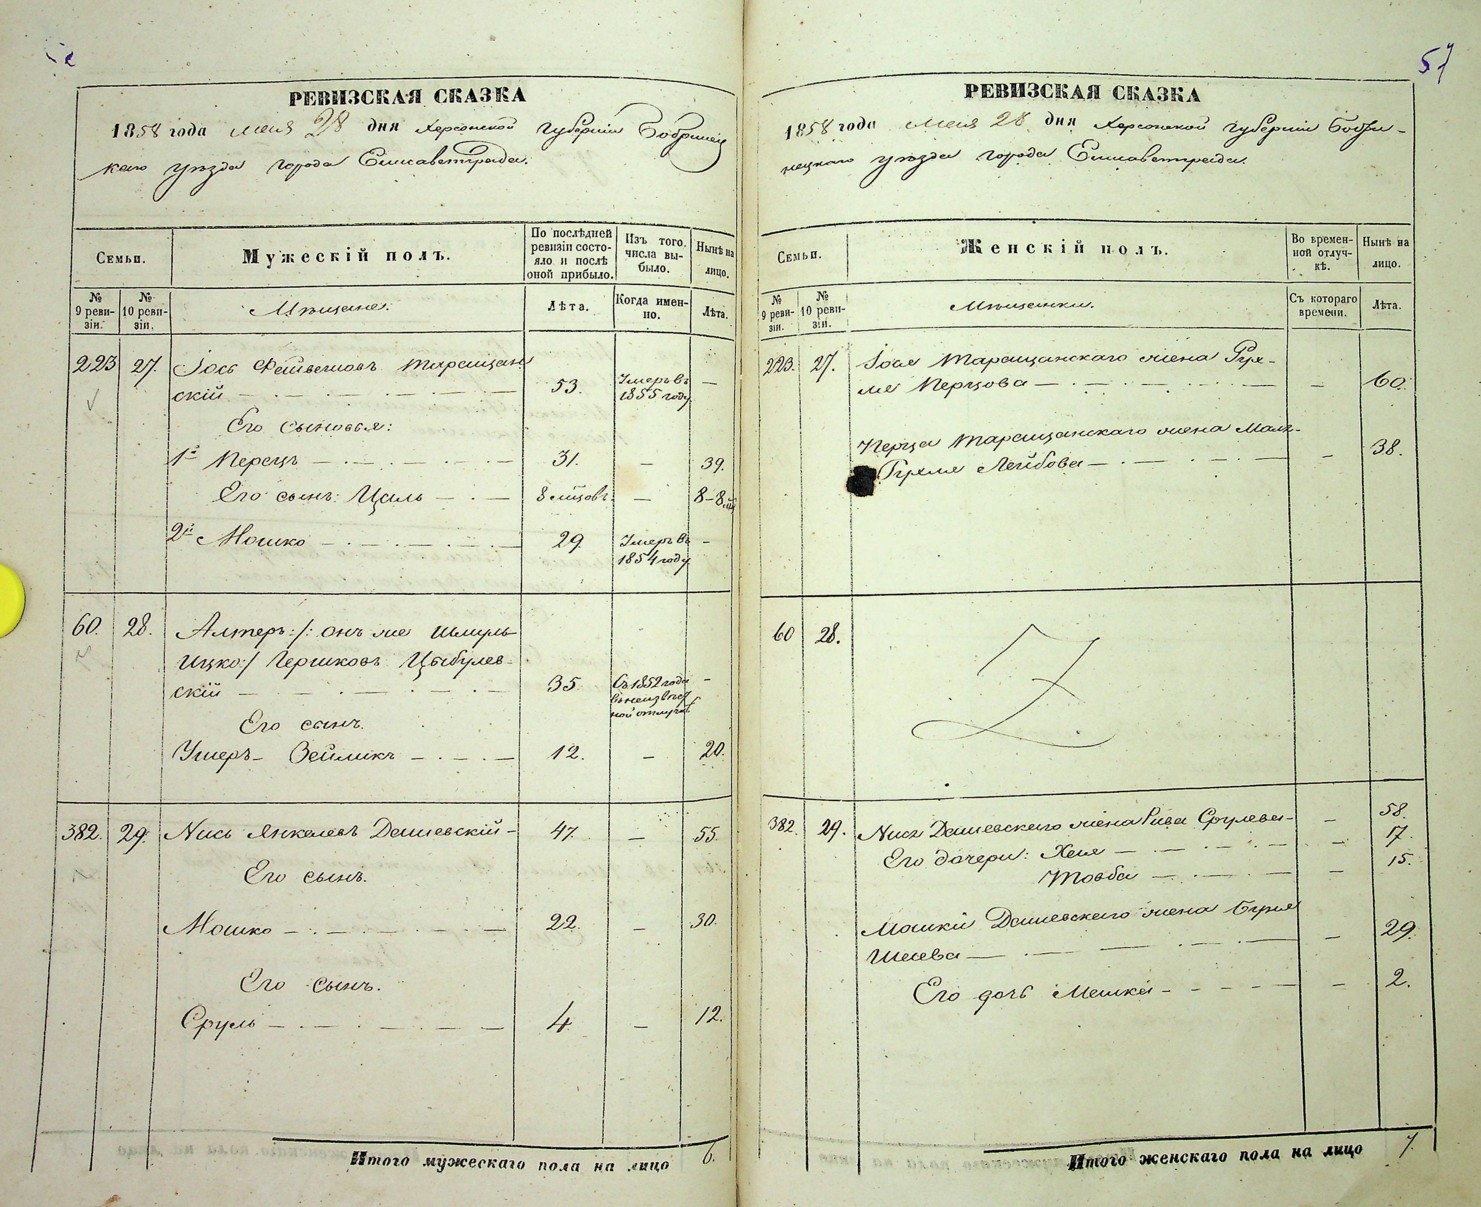 57
РЕВИЗСКАЯ СКАЗКА
1858 года мая 28 дня Херсонской губерніи Бобринец
каго уѣзда города Елисаветграда.
Семьи.
Мужескій полъ.
По послѣдней
ревизіи состо-
яло и послѣ
оной прибыло.
Изъ того
числа вы-
было.
Нынѣ на
лицо.
№
9 реви-
зіи.
№
10 реви-
зіи.
Мѣщане.
Лѣта.
Когда имен-
но.
Лѣта.
223 27. Іось Фейвешовъ Таращан
скій 53. Умеръ въ
1855 году
Его сыновья:
1й Перецъ 31. 39.
Его сынъ: Циль 8 мѣсцовъ. 8-8
2й Мошко 29. Умеръ въ
1854 году
60. 28. Алтеръ :/: онъ же Шмуль
Ицко :/ Гершковъ Цыбулев-
скій 35 Съ 1852 года
въ неизвѣст
ной отлучкѣ
Его сынъ.
Ушеръ-Зейликъ 12. 20.
382. 29. Нись Янкелевъ Дашевскій 47. 55.
Его сынъ.
Мошко 22. 30.
Его сынъ.
Сруль 4 12.
Итого мужескаго пола на лицо 6.
РЕВИЗСКАЯ СКАЗКА
1858 года мая 28 дня Херсонской губерніи Бобри-
нецкаго уѣзда города Елисаветграда.
Семьи.
Женскій полъ.
Во времен-
ной отлуч-
кѣ.
Нынѣ на
лицо.
№
9 реви-
зіи.
№
10 реви-
зіи.
Мѣщанки.
Съ котораго
времени.
Лѣта.
223. 27. Іося Таращанскаго жена
Перцова 60.
Перца Таращанскаго жена
Лейбова 38.
60 28.
382. 29. Нися Дашевскаго жена Рива Срулева 58.
Его дочери: Хая 17.
Товба 15.
Мошки Дашевскаго жена
29.
Его дочь 2.
Итого женскаго пола на лицо 7